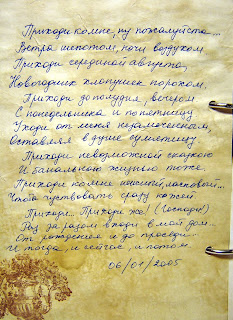 Приходи ко мне, ну пожалуйста...
Ветра шепотом, ночи воздухом.
Приходи серединой августа,
Новогодних хлопушек порохом.
Приходи до полудня, вечером
С понедельника и по пятницу
Уходи от меня незамеченным,
Оставляя в душе сумятицу
Приходи невозможной сказкою
И банальною жизнью тоже.
Приходи ко мне, ласковый...
Чтоб чувствовать сразу кожей
Приходи... Приходи же! (Господи!)
Раз за разом входи в мой дом...
От рождения и до проседи...
И тогда, и сейчас, и потом.
06/01/2005